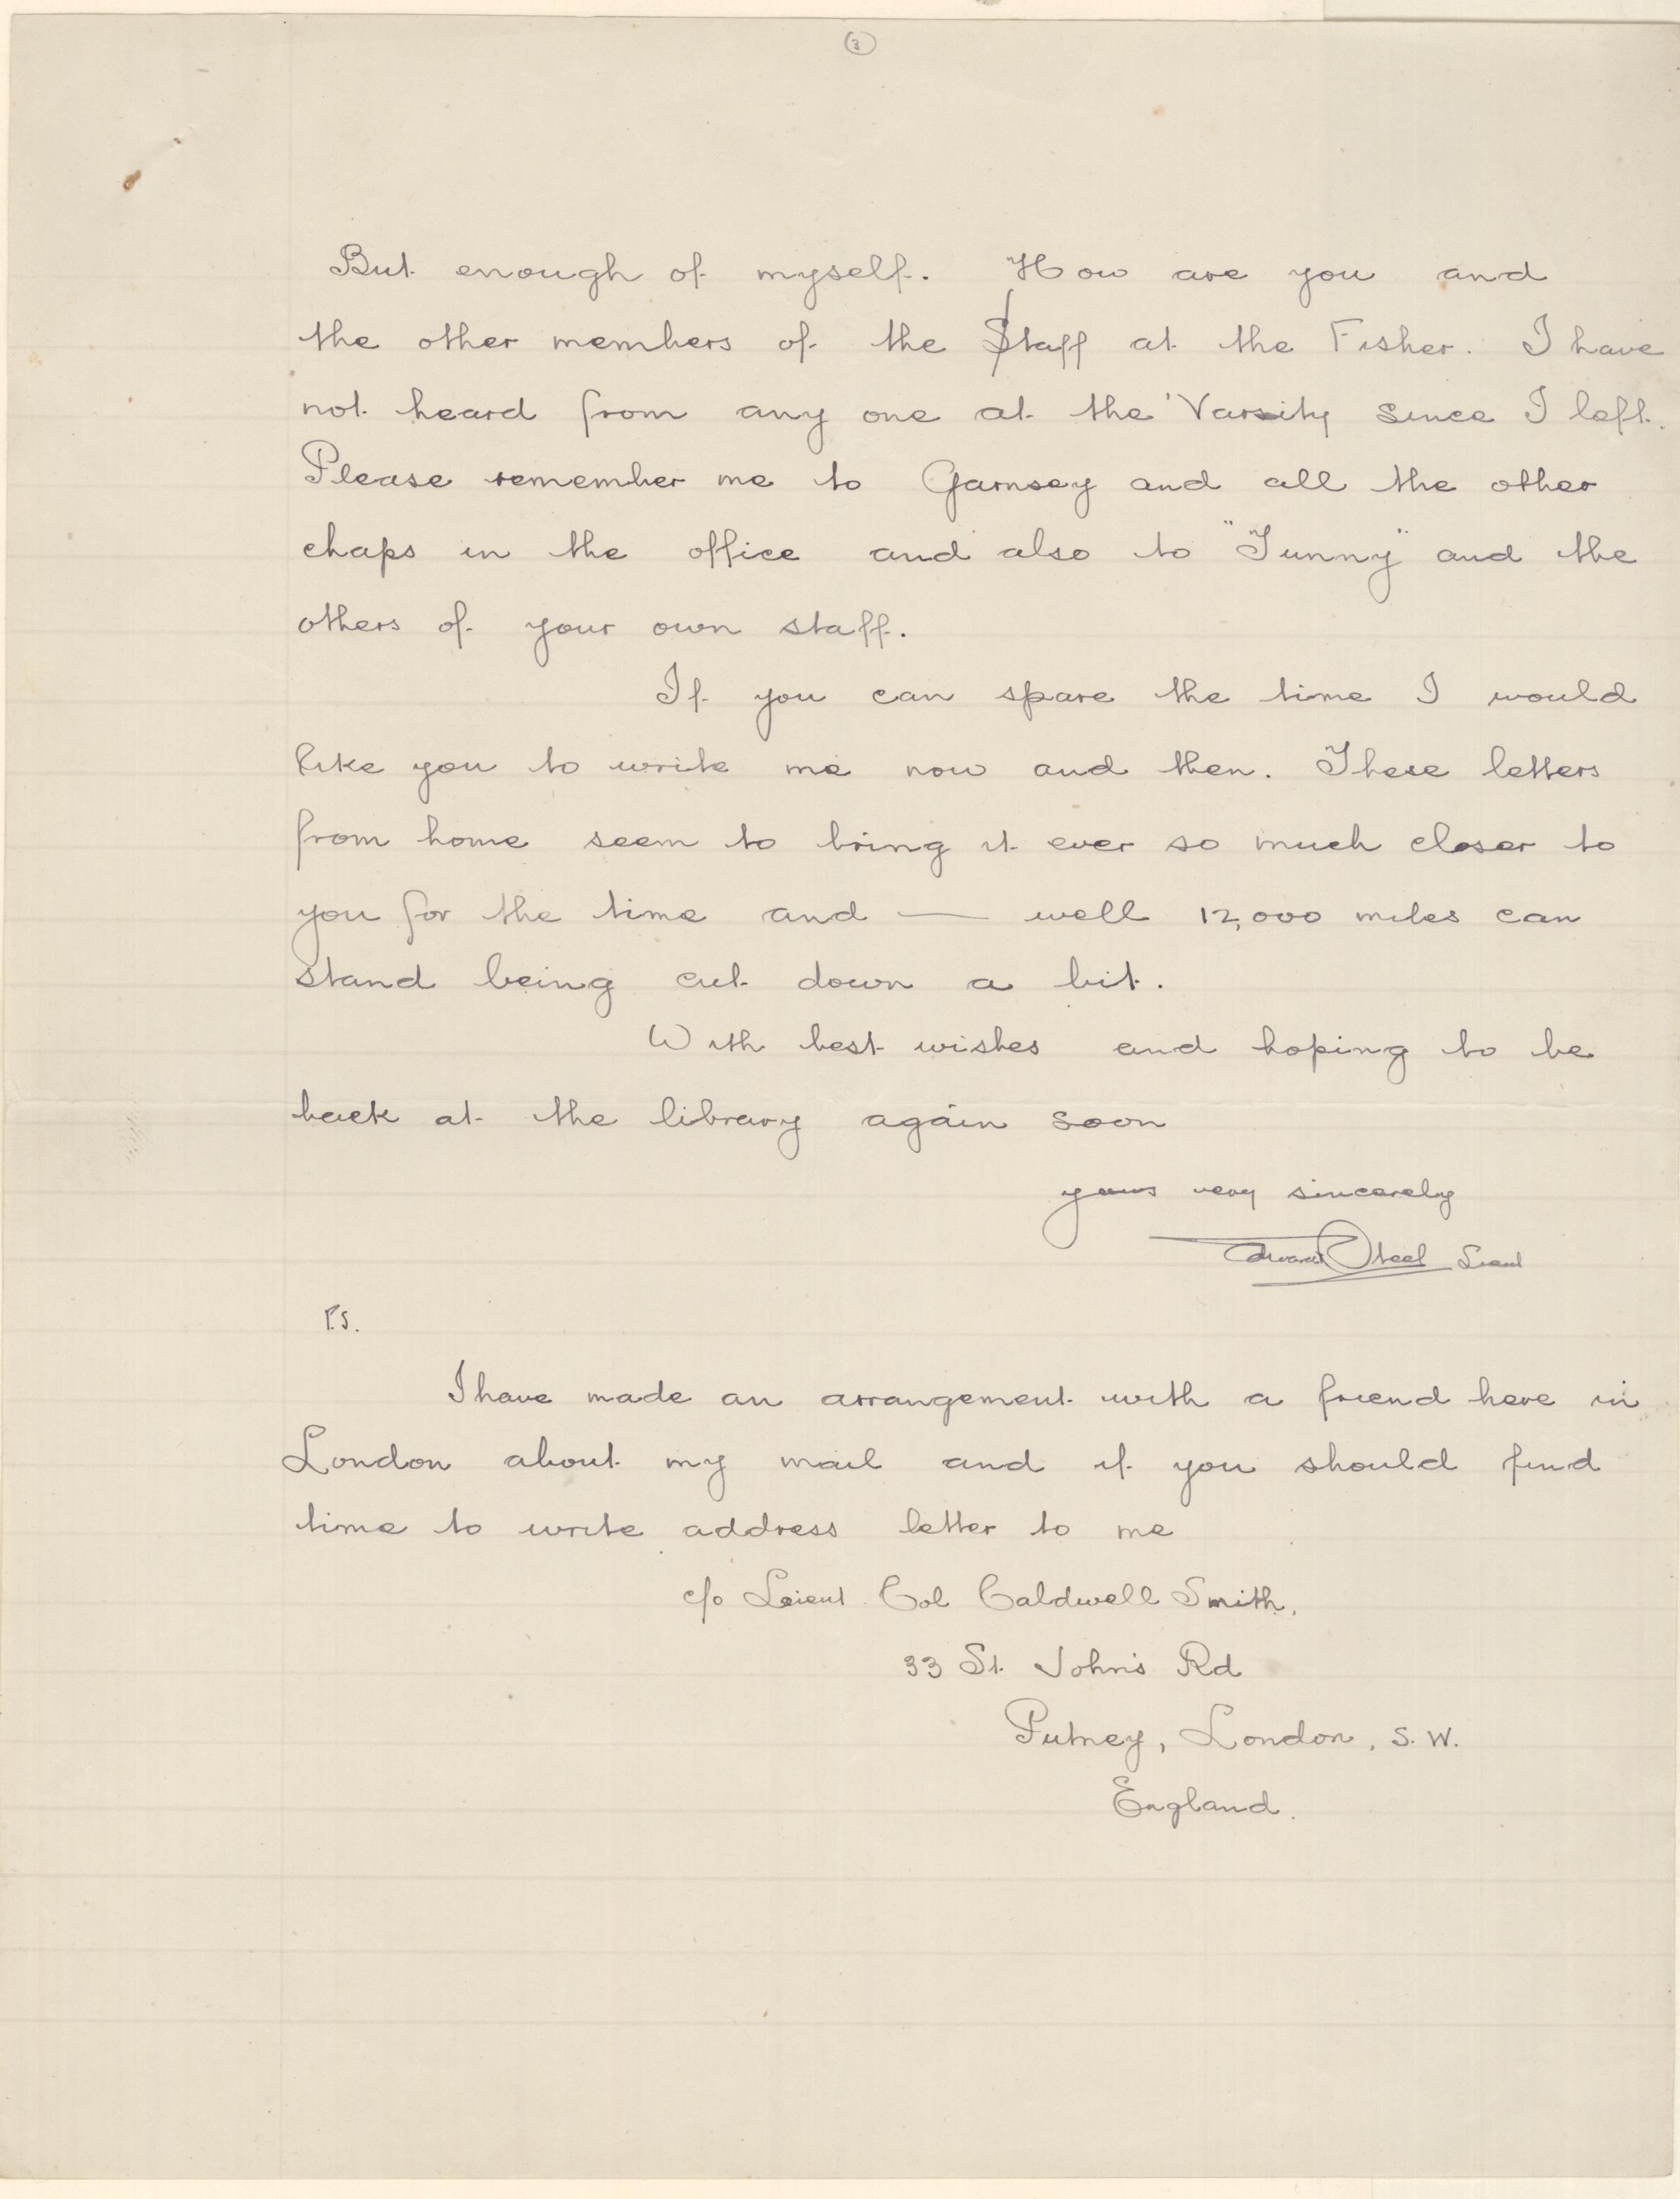 3
But enough of myself. How are you and
the other members of the Staff at the Fisher. I have
not heard from any one at the 'Varsity since I left.
Please remember me to Garnsey and all the other
chaps in the office and also to "Tunny" and the
others of your own staff.
If you can spare the time I would
like you to write me now and then. These letters
from home seem to bring it ever so much closer to
you for the time and — well 12,000 miles can
stand being cut down a bit.
With best wishes and hoping to be
back at the library again soon
yours very sincerely
Edward Steel Lieut
P.S.
I have made an arrangement with a friend here in
London about my mail and if you should find
time to write address letter to me
c/o Leieut Col Caldwell Smith,
33 St. John's Rd
Putney, London, S. W.
England.